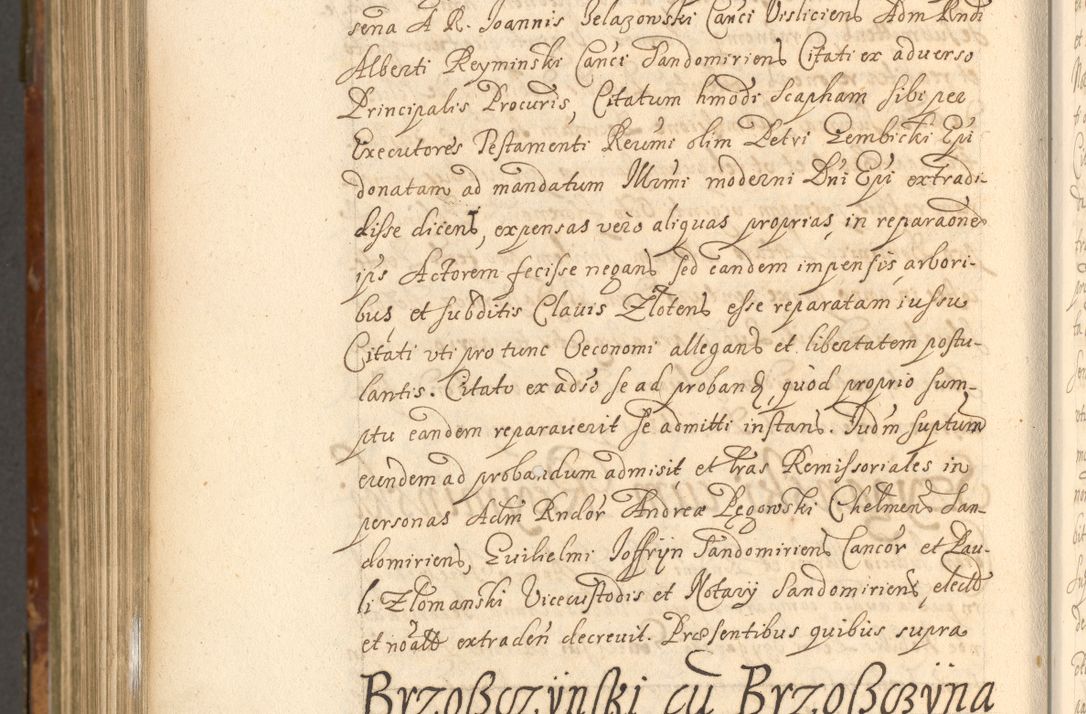 sena A R. Joannis Zelazowski Canci Visliciens Adm Rndi
Alberti Reyminski Canci Sandomiriens Citati ex adverso
Principalis Procuris, Citatum hmodi scapham sibi per
Executores Testamenti Reumi olim Petri Gembicki Epi
donatam ad mandatum Illrmi moderni Dni Epi extradi-
disse dicens, expensas vero aliquas proprias in reparaone
ips Actorem fecisse negans sed eandem impensis arbori-
bus et subditis Clavis Zlotens esse reparatam iussu
Citati uti pro tunc Oeconomi allegans et libertatem postu-
lantis. Citato ex adso se ad proband, quod proprio sum-
ptu eandem reparaverit se admitti instans. Iudm suptum
eundem ad probandum admisit et lras Remissoriales in
personas Adm Rndor Andreæ Pęgowski Chelmens San-
domiriens, Guilielmi Joffryn Sandomiriens Cancor et Pau-
li Zlomanski Vicecustodis et Notary Sandomiriens elect
et noatt extraden decrevit. Præsentibus quibus supra
Brzosczÿnski cu Brzosczÿna